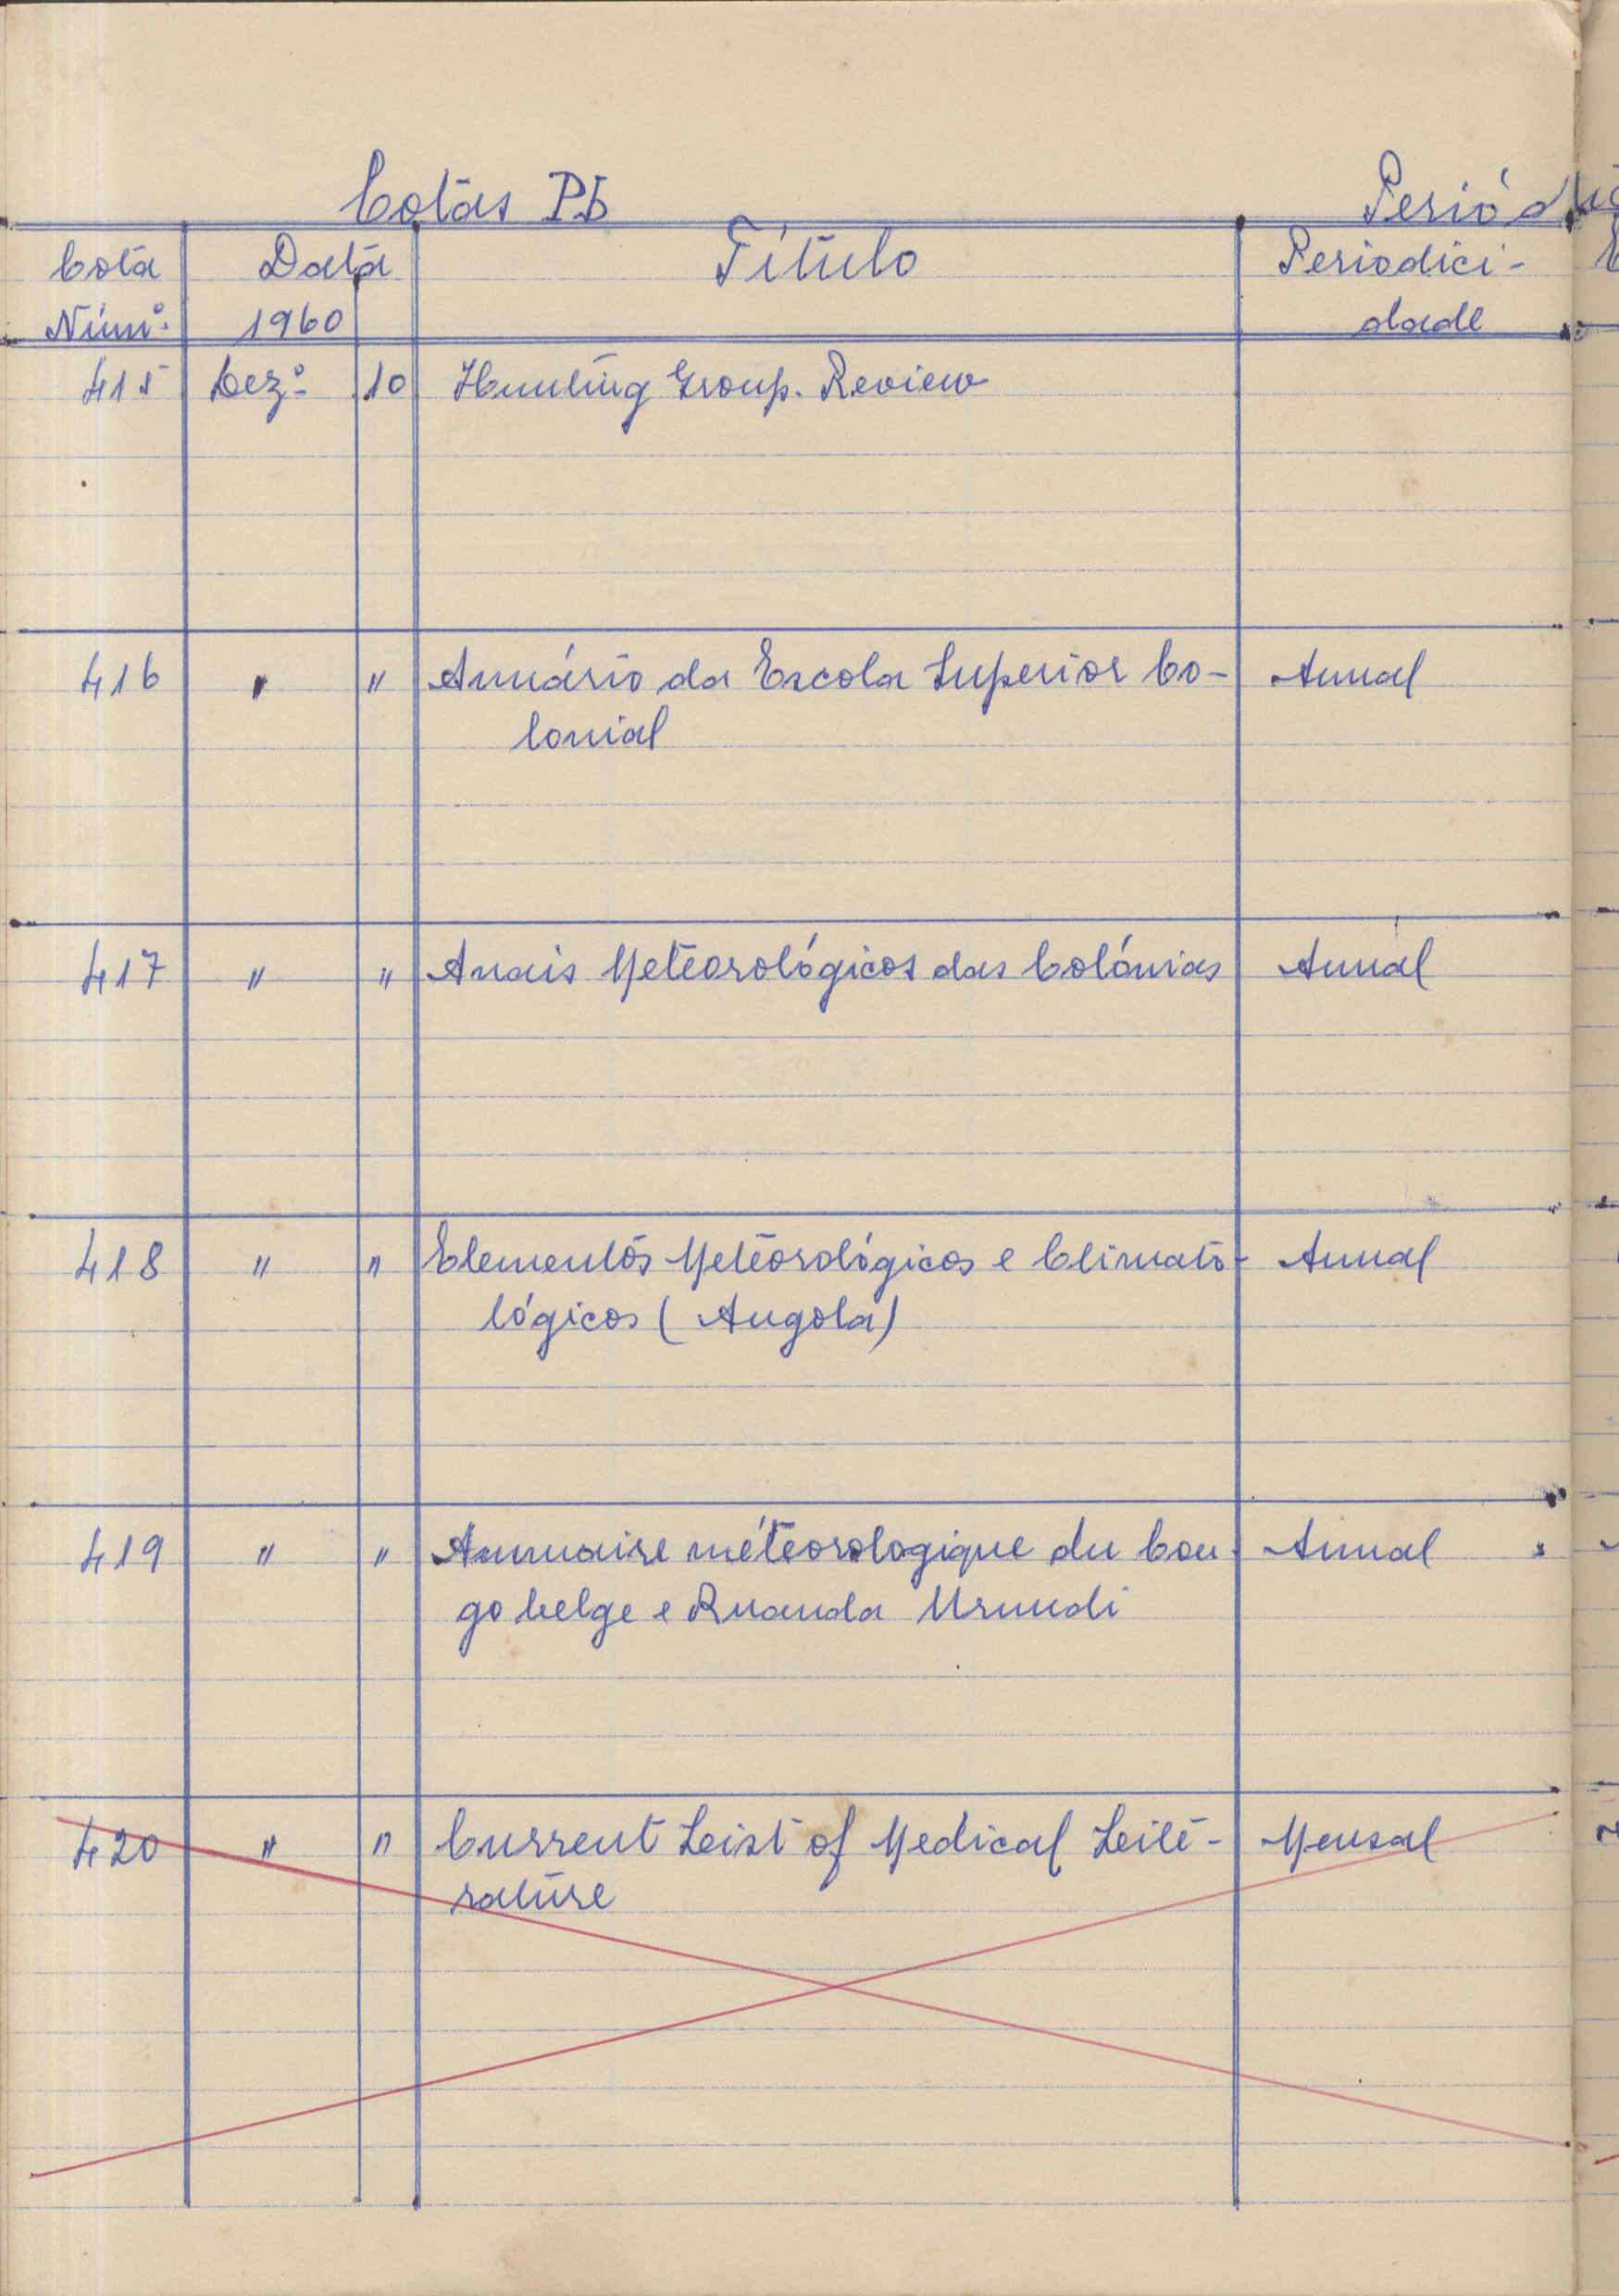 Cotas Pb Periódi
Cota Data Título Periodici-
Núm.º 1960 dade
415 Dez.º 10 Hunting Group. Review
416 " " Anuário da Escola Superior Co- Anual
lonial
417 " " Anais Meteorológicos das Colónias Anual
418 " " Elementos Meteorológicos e Climato- Anual
lógicos (Angola)
419 " " Annuaire météorologique du Con- Anual
go belge e Ruanda Urundi
420 " " Current Leist of Medical Leite- Mensal
rature